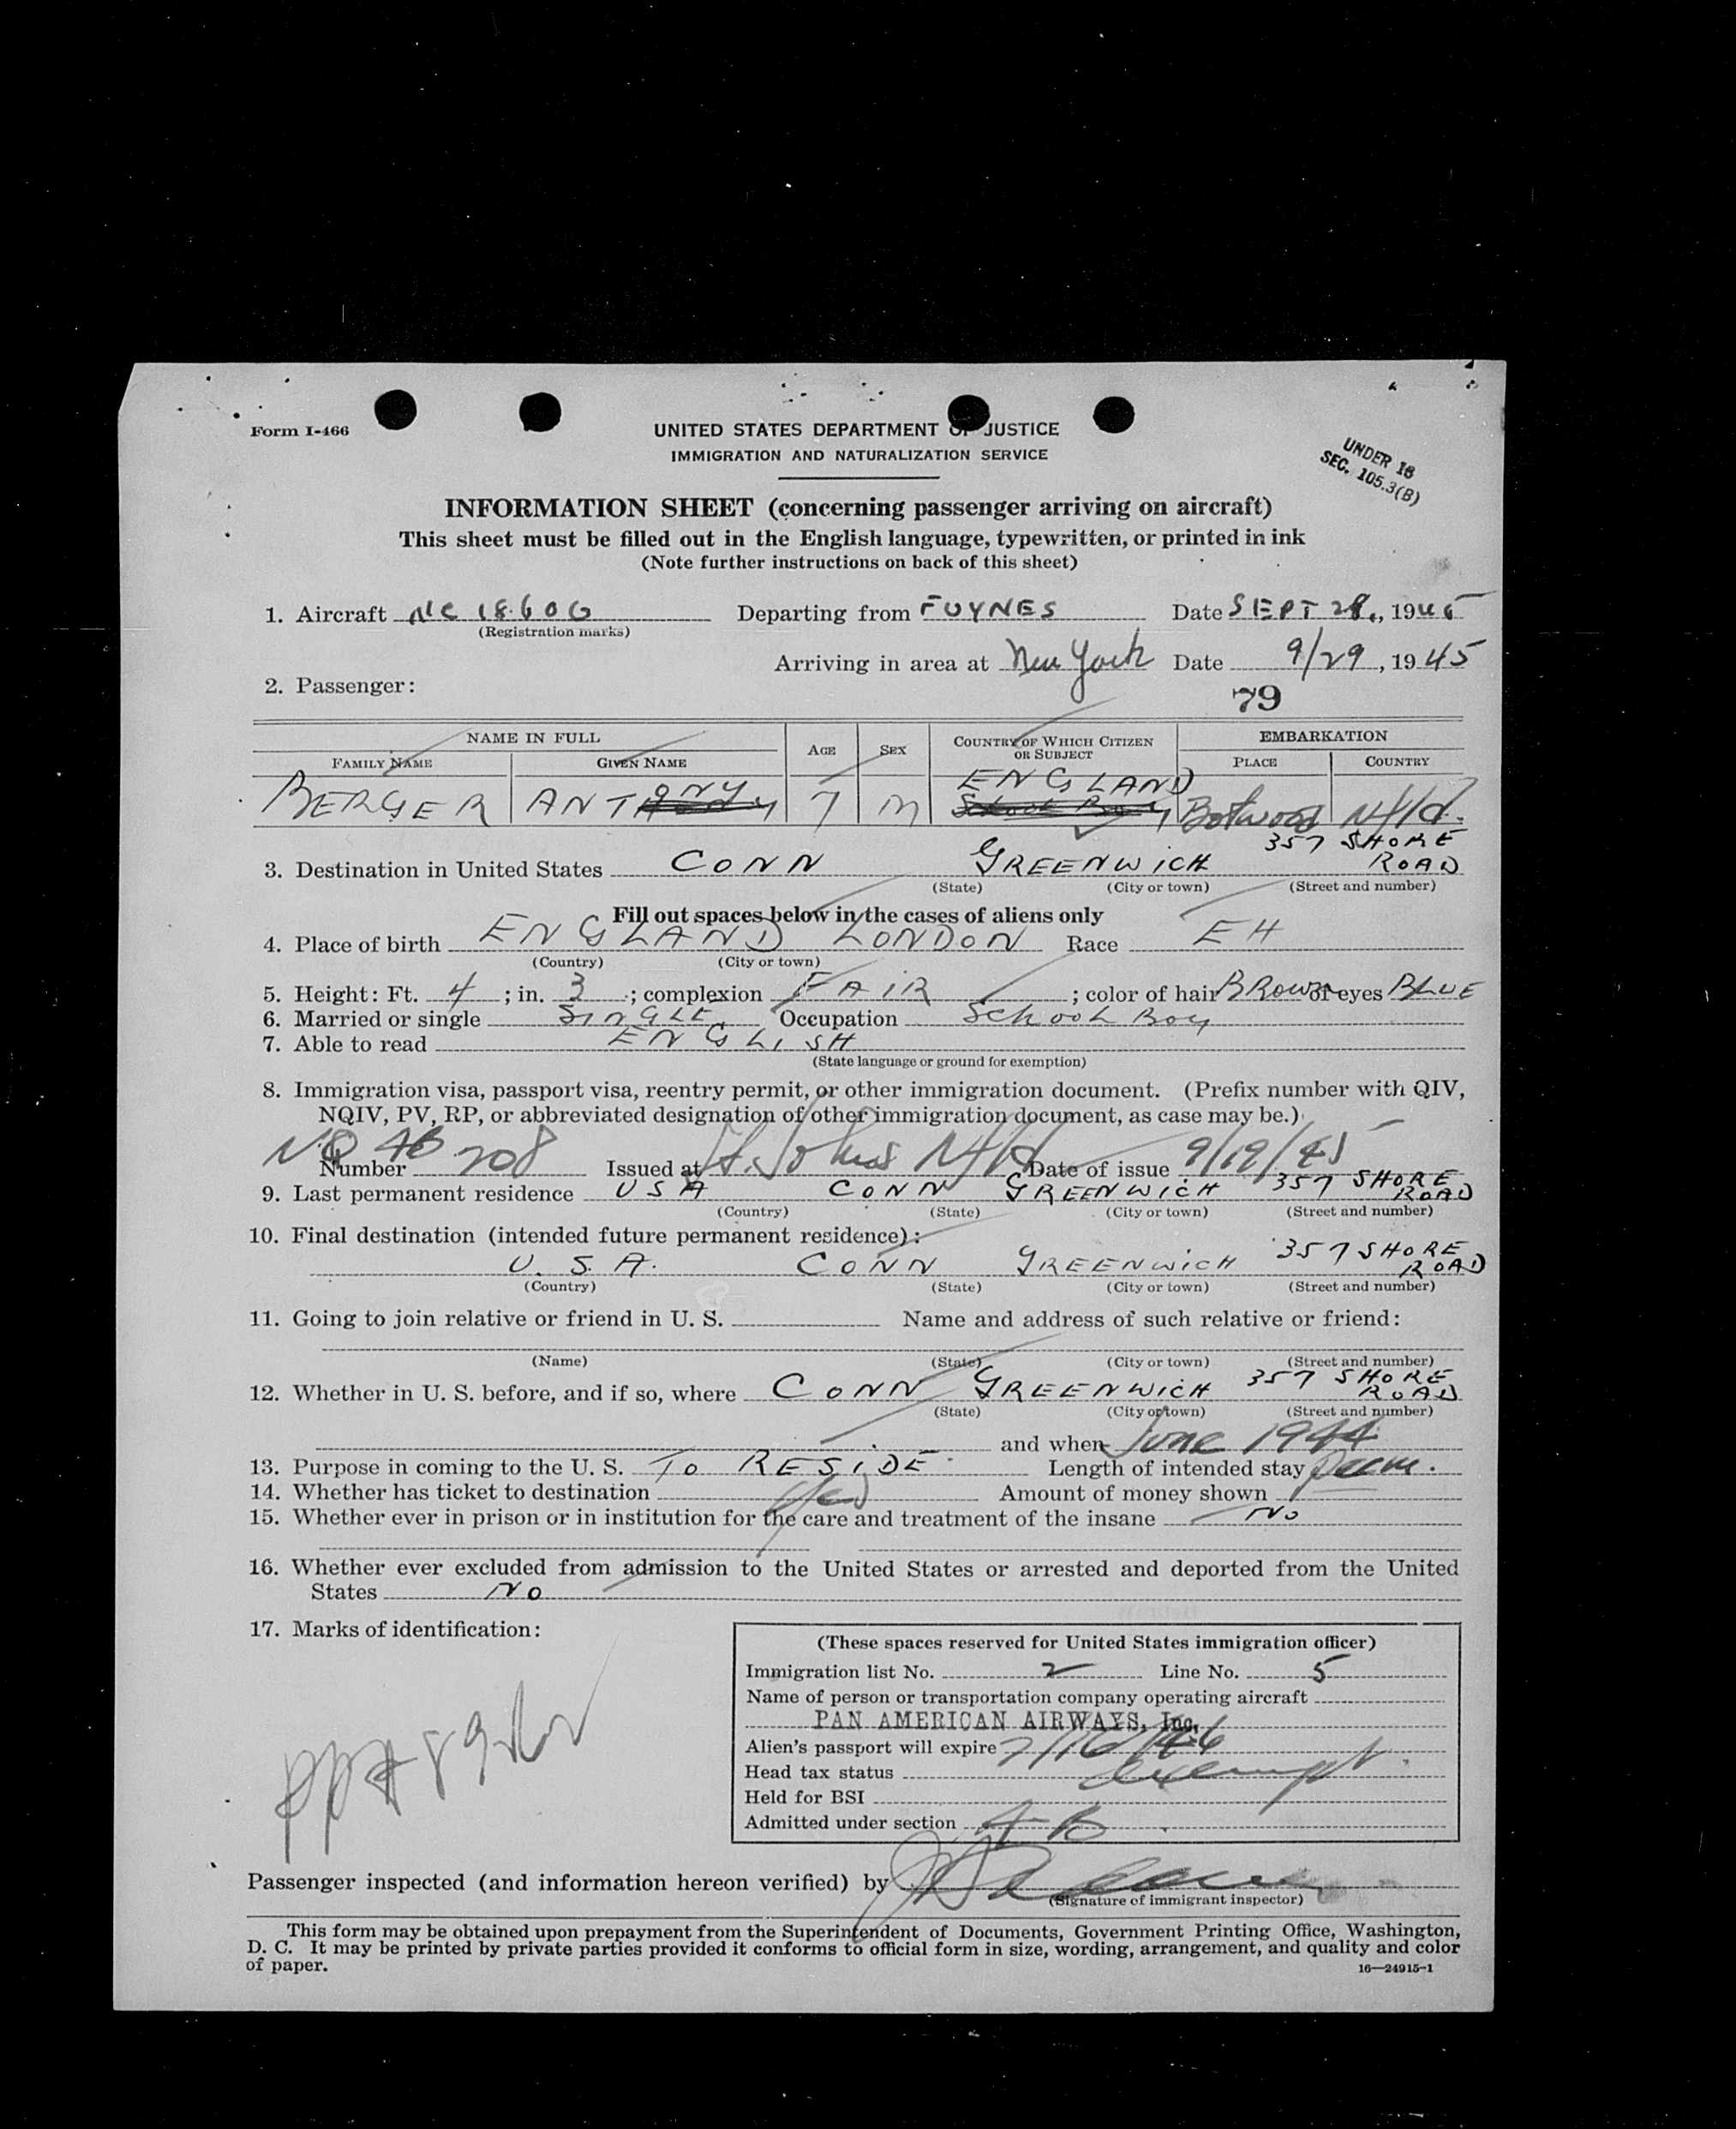 Form I-466
UNITED STATES DEPARTMENT OF JUSTICE
IMMIGRATION AND NATURALIZATION SERVICE
UNDER 16
SEC. 105.3(B)
INFORMATION SHEET (concerning passenger arriving on aircraft)
This sheet must be filled out in the English language, typewritten, or printed in ink
(Note further instructions on back of this sheet)
1. Aircraft NC 18606 Departing from FOYNES Date SEPT 28., 1945
(Registration marks)
Arriving in area at New York Date 9/29, 1945
2. Passenger:
79
NAME IN FULL AGE SEX COUNTRY OF WHICH CITIZEN OR SUBJECT EMBARKATION
FAMILY NAME GIVEN NAME PLACE COUNTRY
ENGLAND
BERGER ANTHONY 7 M School Boy Botwood Nfld.
357 SHORE
3. Destination in United States CONN GREENWICH ROAD
(State) (City or town) (Street and number)
Fill out spaces below in the cases of aliens only
4. Place of birth ENGLAND LONDON Race EH
(Country) (City or town)
5. Height: Ft. 4; in. 3; complexion FAIR; color of hair BROWN of eyes BLUE
6. Married or single SINGLE Occupation School Boy
7. Able to read ENGLISH
(State language or ground for exemption)
8. Immigration visa, passport visa, reentry permit, or other immigration document. (Prefix number with QIV,
NQIV, PV, RP, or abbreviated designation of other immigration document, as case may be.)
NQ 4B
Number 208 Issued at St. Johns Nfld Date of issue 9/19/45
9. Last permanent residence USA CONN GREENWICH 357 SHORE ROAD
(Country) (State) (City or town) (Street and number)
10. Final destination (intended future permanent residence):
U.S.A. CONN GREENWICH 357 SHORE ROAD
(Country) (State) (City or town) (Street and number)
11. Going to join relative or friend in U. S. Name and address of such relative or friend:
(Name) (State) (City or town) (Street and number)
12. Whether in U. S. before, and if so, where CONN GREENWICH 357 SHORE ROAD
(State) (City or town) (Street and number)
and when June 1944
13. Purpose in coming to the U. S. TO RESIDE Length of intended stay Perm.
14. Whether has ticket to destination Yes Amount of money shown
15. Whether ever in prison or in institution for the care and treatment of the insane No
16. Whether ever excluded from admission to the United States or arrested and deported from the United
States No
17. Marks of identification:
(These spaces reserved for United States immigration officer)
Immigration list No. 2 Line No. 5
Name of person or transportation company operating aircraft
PAN AMERICAN AIRWAYS, Inc.
Alien's passport will expire 7/16/46
Head tax status exempt.
Held for BSI
Admitted under section 4-B
Passenger inspected (and information hereon verified) by
(Signature of immigrant inspector)
This form may be obtained upon prepayment from the Superintendent of Documents, Government Printing Office, Washington,
D. C. It may be printed by private parties provided it conforms to official form in size, wording, arrangement, and quality and color
of paper.
16—24915-1